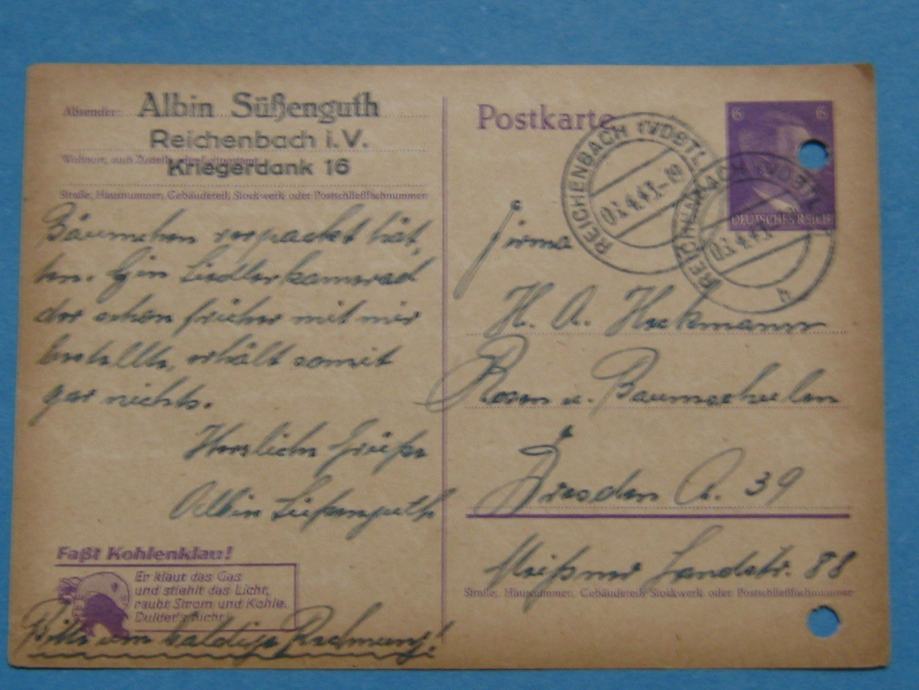 Absender: Albin Süßenguth
Reichenbach i. V.
Kriegerdank 16
Straße, Hausnummer, Gebäudeteil, Stockwerk oder Postschließfachnummer
Bäumchen verpackt hät,
ten. Ein Siedlerkamerad
der schon früher mit mir
bestellte, erhält somit
gar nichts.
Herzliche Grüße
Albin Süßenguth
Faßt Kohlenklau!
Er klaut das Gas
und stiehlt das Licht,
raubt Strom und Kohle.
Duldet's nicht
Bitte um baldige Rechnung!
Postkarte
6 6
DEUTSCHES REICH
REICHENBACH (VOGTL)
03.4.43.-19
REICHENBACH (VOGTL)
03.4.43
Firma
H. A. Heckmann
Rosen u. Baumschulen
Dresden A. 39
Meißner Landstr. 88
Straße, Hausnummer, Gebäudeteil, Stockwerk oder Postschließfachnummer